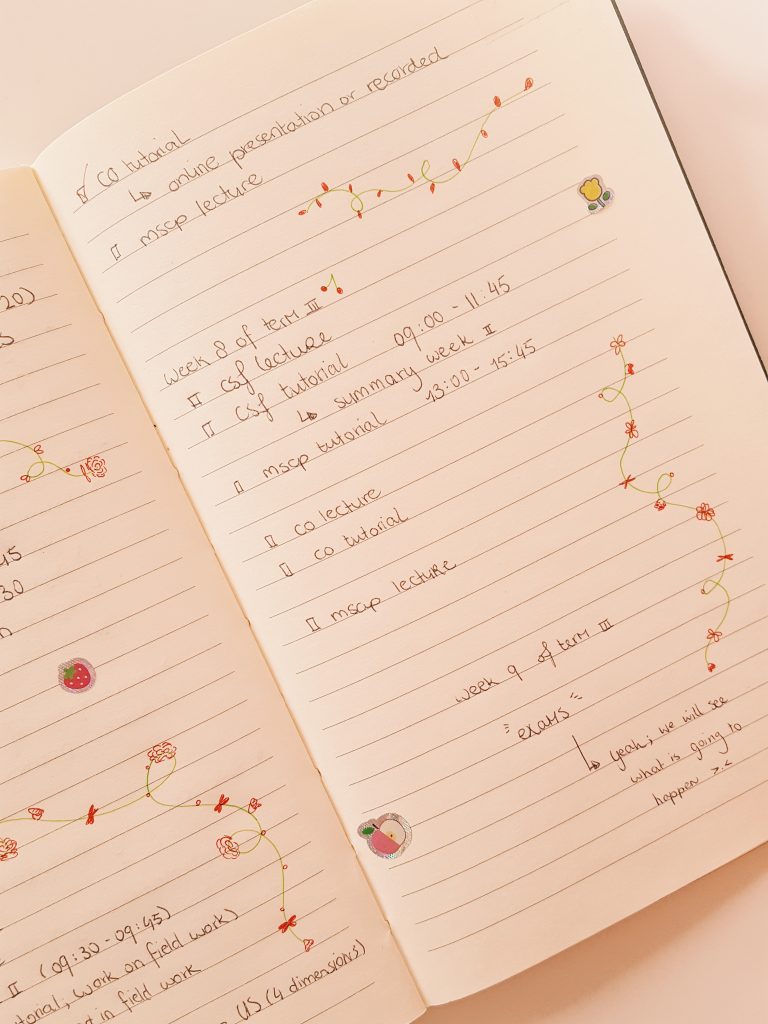 20)
45
30
II (09:30-09:45)
work on field work)
in field work
US (4 dimensions)
co tutorial
↳ online presentation or recorded
mscp lecture
week 8 of term III
csf lecture
csf tutorial 09:00 - 11:45
↳ summary week II
mscp tutorial 13:00 - 15:45
co lecture
co tutorial
mscp lecture
week 9 of term III
exams
↳ yeah; we will see
what is going to
happen >.<